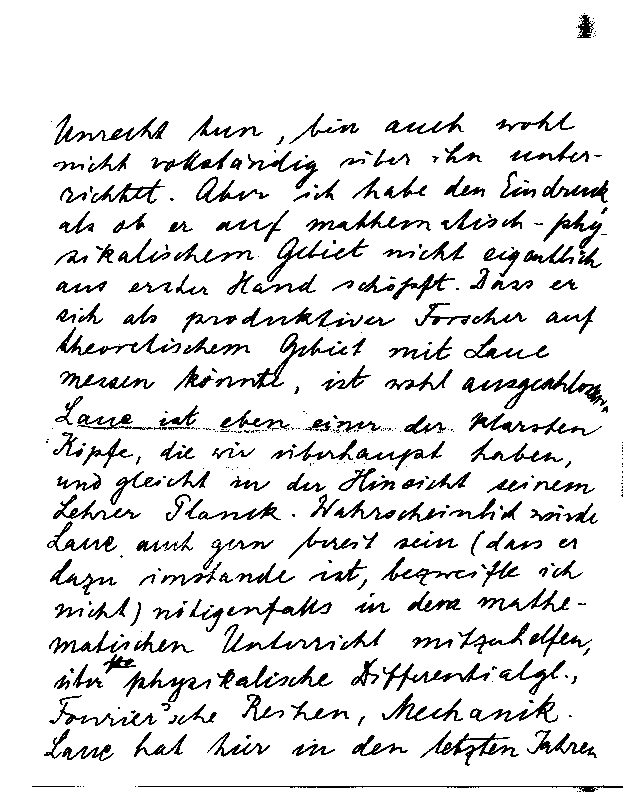 Unrecht tun, bin auch wohl
nicht vollständig über ihn unter-
richtet. Aber ich habe den Eindruck,
als ob er auf mathematisch-phy-
sikalischem Gebiet nicht eigentlich
aus erster Hand schöpft. Dass er
sich als produktiver Forscher auf
theoretischem Gebiet mit Laue
messen könnte, ist wohl ausgeschlossen.
Laue ist eben einer der klarsten
Köpfe, die wir überhaupt haben,
und gleicht in der Hinsicht seinem
Lehrer Planck. Wahrscheinlich würde
Laue auch gern bereit sein (dass er
dazu imstande ist, bezweifle ich
nicht) nötigenfalls in dem mathe-
matischen Unterricht mitzuhelfen,
über physikalische Differentialgl.,
Fourier'sche Reihen, Mechanik.
Laue hat hier in den letzten Jahren